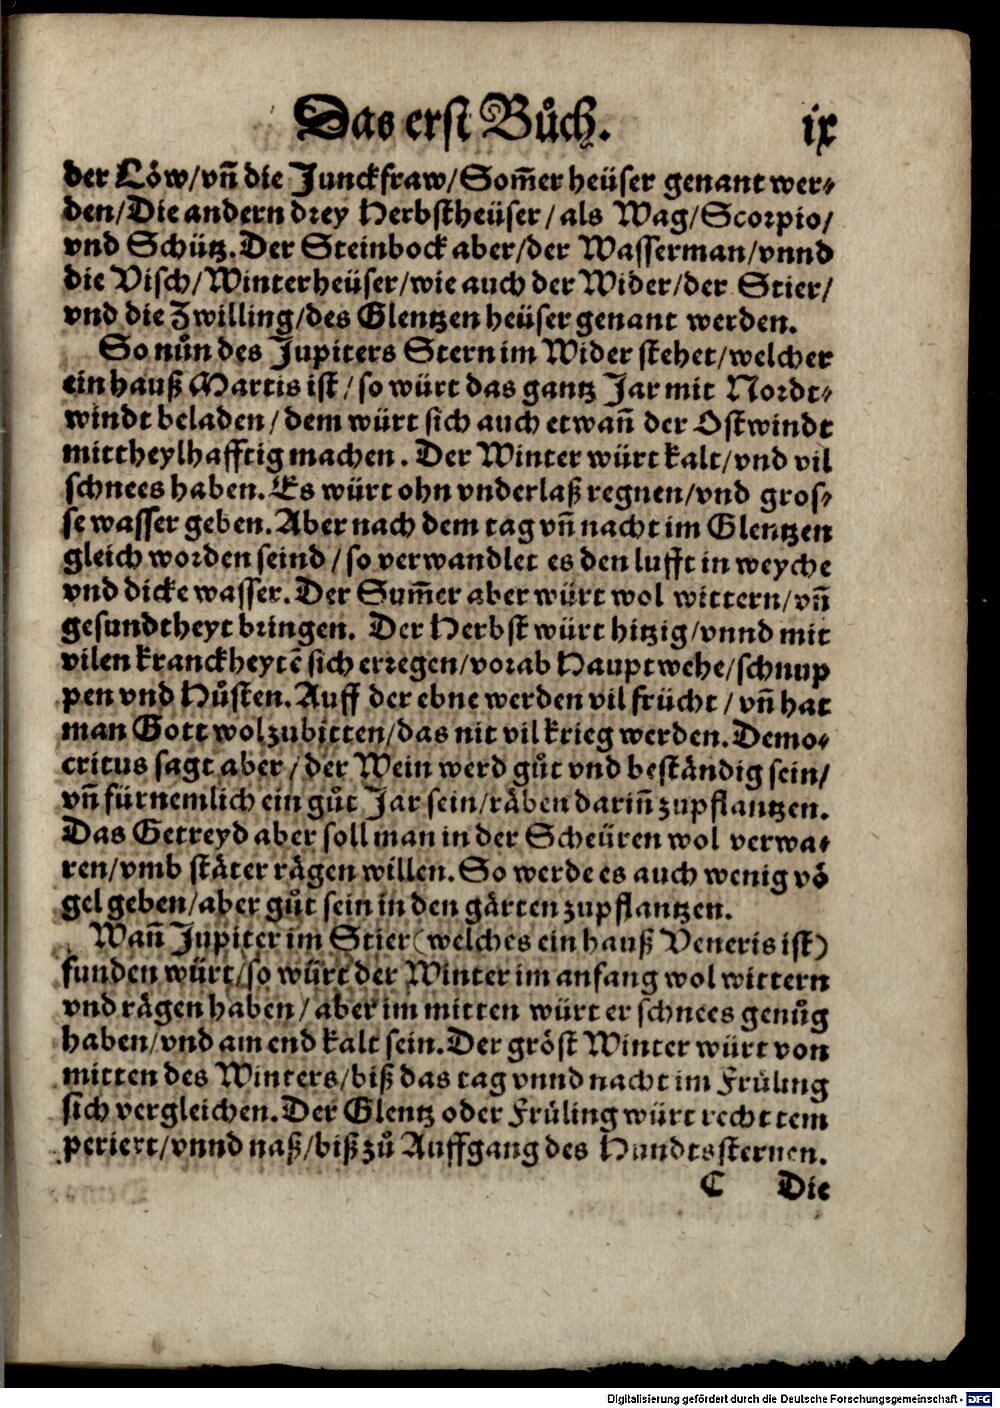 Das erst Bůch. ix
der Löw/vñ die Junckfraw/Som̃er heüser genant wer⸗
den/Die andern drey Herbstheüser/als Wag/Scorpio/
vnd Schütz. Der Steinbock aber/der Wasserman/vnnd
die Visch/Winterheüser/wie auch der Wider/der Stier/
vnd die Zwilling/des Glentzen heüser genant werden.
So nůn des Jupiters Stern im Wider stehet/welcher
ein hauß Martis ist/so würt das gantz Jar mit Nordt⸗
windt beladen/dem würt sich auch etwañ der Ostwindt
mittheylhafftig machen. Der Winter würt kalt/vnd vil
schnees haben. Es würt ohn vnderlaß regnen/vnd gros⸗
se wasser geben. Aber nach dem tag vñ nacht im Glentzen
gleich worden seind/so verwandlet es den lufft in weyche
vnd dicke wasser. Der Sum̃er aber würt wol wittern/vñ
gesundtheyt bringen. Der Herbst würt hitzig/vnnd mit
vilen kranckheytẽ sich erregen/vorab Hauptwehe/schnup
pen vnd Hůsten. Auff der ebne werden vil frücht/vñ hat
man Gott wol zubitten/das nit vil krieg werden. Demo⸗
critus sagt aber/der Wein werd gůt vnd beständig sein/
vñ fürnemlich ein gůt Jar sein/räben dariñ zupflantzen.
Das Getreyd aber soll man in der Scheüren wol verwa⸗
ren/vmb stäter rägen willen. So werde es auch wenig vö
gel geben/aber gůt sein in den gärten zupflantzen.
Wañ Jupiter im Stier (welches ein hauß Veneris ist)
funden würt/so würt der Winter im anfang wol wittern
vnd rägen haben/aber im mitten würt er schnees genůg
haben/vnd am end kalt sein. Der gröst Winter würt von
mitten des Winters/biß das tag vnnd nacht im Früling
sich vergleichen. Der Glentz oder Früling würt recht tem
periert/vnnd naß/biß zů Auffgang des Hundtssternen.
C Die
Digitalisierung gefördert durch die Deutsche Forschungsgemeinschaft - DFG